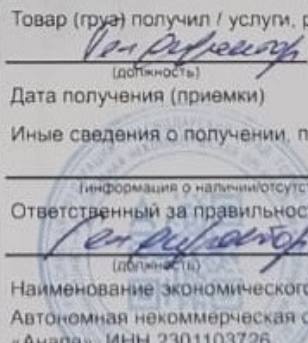 Товар (груз) получил / услуги, р
Ген директор
(должность)
Дата получения (приемки)
Иные сведения о получении, п
(информация о наличии/отсутст
Ответственный за правильност
Ген директор
(должность)
Наименование экономического
Автономная некоммерческая о
«Анапа», ИНН 2301103726